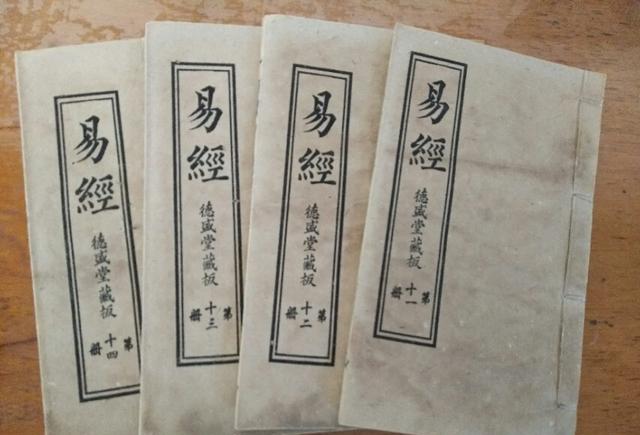 易經
德盛堂藏板
第十四册
易經
德盛堂藏板
第十三册
易經
德盛堂藏板
第十二册
易經
德盛堂藏板
第十一册